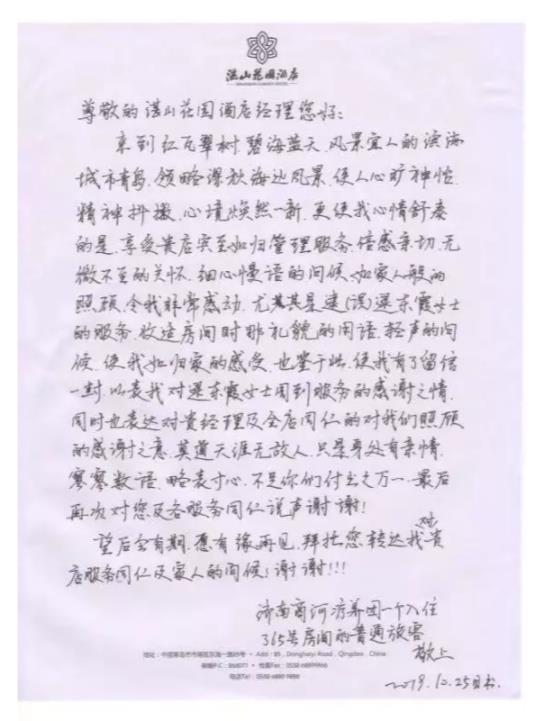 湛山花园酒店
尊敬的湛山花园酒店经理您好:
来到红瓦翠树、碧海蓝天、风景宜人的滨海
城市青岛、领略深秋海边风景、使人心旷神怡、
精神抖擞、心境焕然一新、更使我心情舒泰
的是、享受贵店宾至如归管理服务、倍感亲切、无
微不至的关怀、细心慢语的问候、如家人般的
照顾、令我非常感动、尤其其是逄(误)選东霞女士
的服务、收这房间时那礼貌的用语、轻声的问
候、使我如归家的感受、也鉴于此、使我有了留信
一封、以表我对選东霞女士周到服务的感谢之情、
同时也表达对贵经理及全店同仁的对我们照顾
的感谢之意、莫道天涯无故人、只是身处有亲情、
寥寥数语、略表寸心、不足你们付出之万一、最后
再次对您及各服务同仁说声谢谢!
望后会有期、愿有缘再见、拜托您、转达我对贵
店服务同仁及家人的问候!谢谢!!!
济南商河疗养团一个入住
365号房间的普通旅客
敬上
2019.10.25日书.